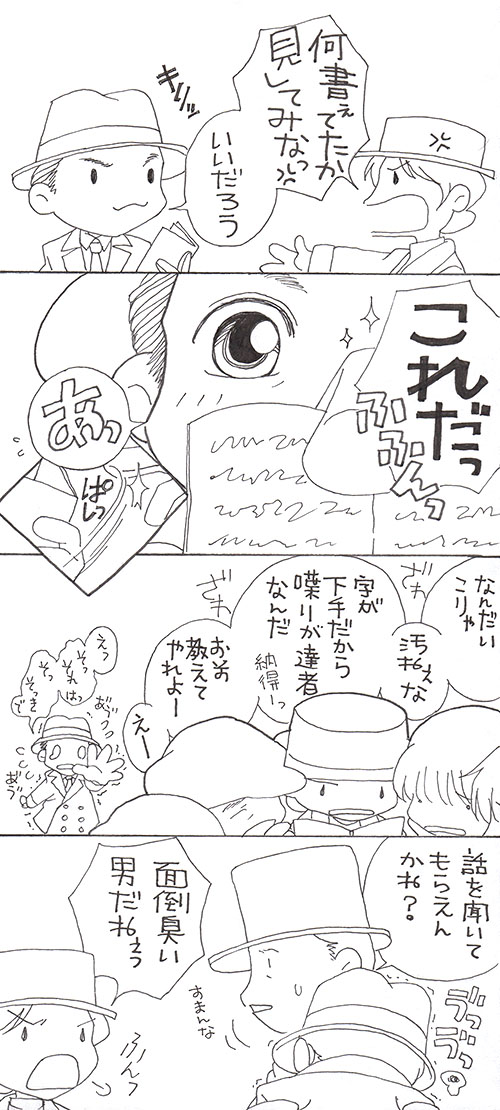 何書ぇてたか
見してみなっ
いいだろう
キリッ
これだっ
ふふんっ
あっ
ぱしっ
なんだい
こりゃ
汚ねぇな
字が
下手だから
喋りが達者
なんだ
納得ーっ
ざわ
ざわ
お前
教えて
やれよー
えー
えっ
そっ
それはっ
そっ
そっきで
あぅっ
あぅ
話を聞いて
もらえん
かね？
面倒臭い
男だねぇっ
すまんな
ふんっ
ブラっブラっ